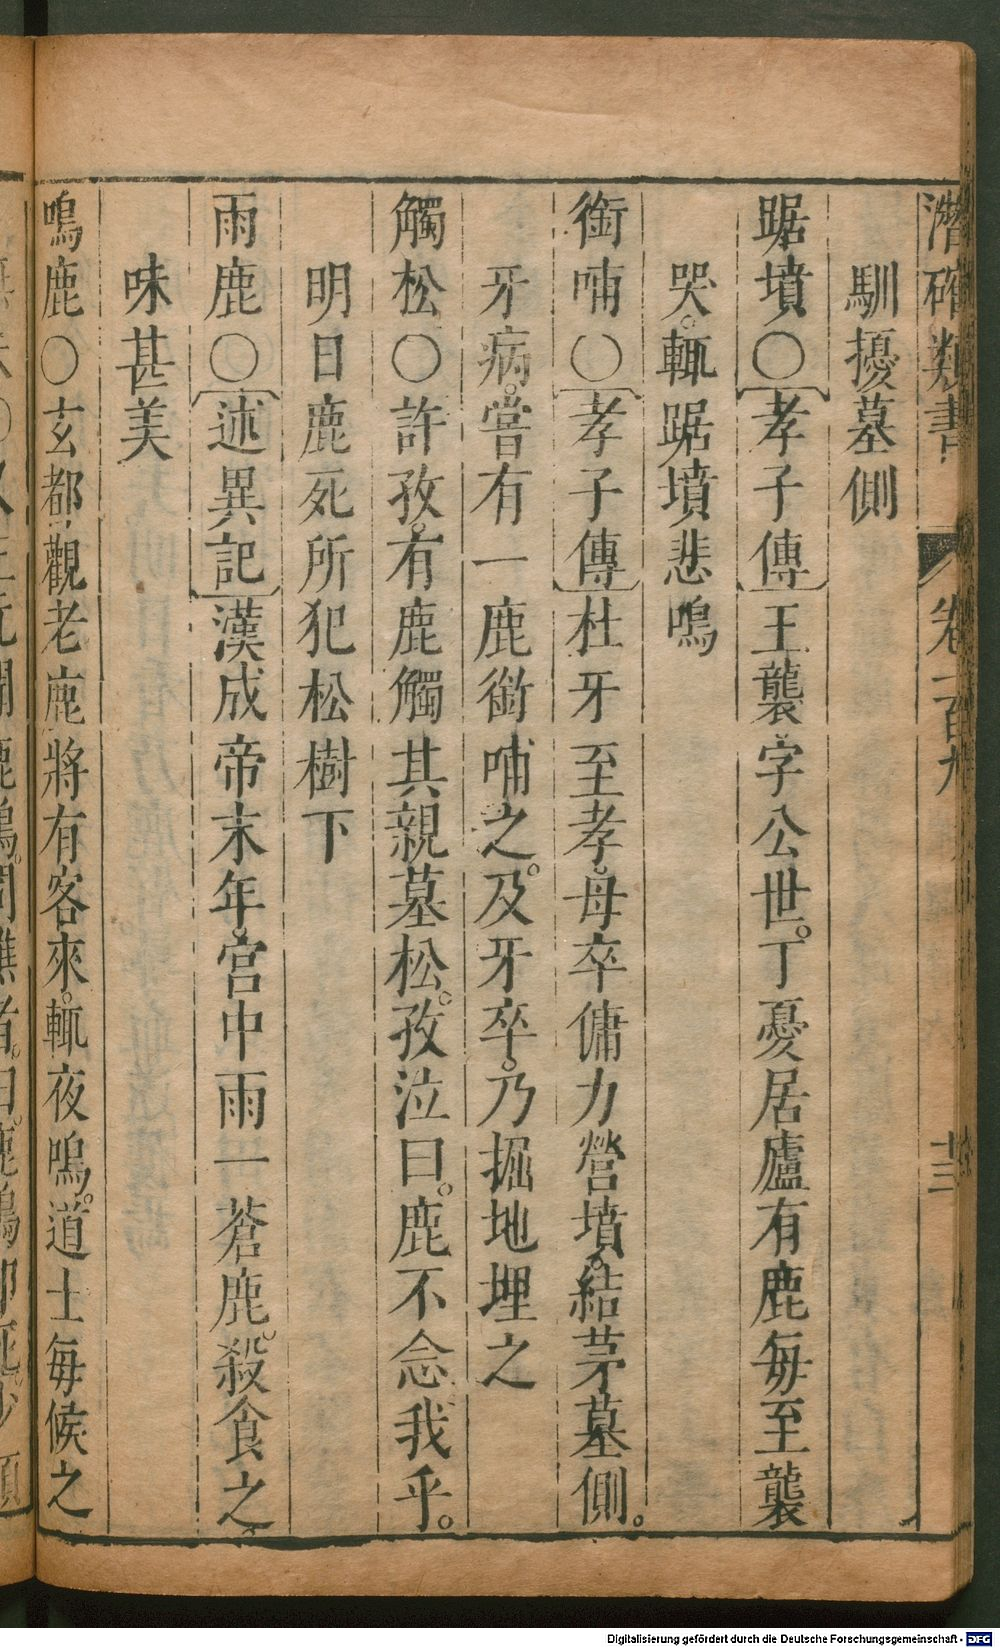 潛確類書 卷一百九 十三
馴擾墓側
踞墳○〔孝子傳〕王襲字公世。丁憂居廬有鹿每至襲
哭。輒踞墳悲鳴
銜哺○〔孝子傳〕杜牙至孝。母卒傭力營墳。結茅墓側。
牙病。嘗有一鹿銜哺之。及牙卒。乃掘地埋之
觸松○許孜。有鹿觸其親墓松。孜泣曰。鹿不念我乎。
明日鹿死所犯松樹下
雨鹿○〔述異記〕漢成帝末年。宮中雨一蒼鹿。殺食之。
味甚美
鳴鹿○玄都觀老鹿將有客來。輒夜鳴。道士每候之
Digitalisierung gefördert durch die Deutsche Forschungsgemeinschaft - DFG